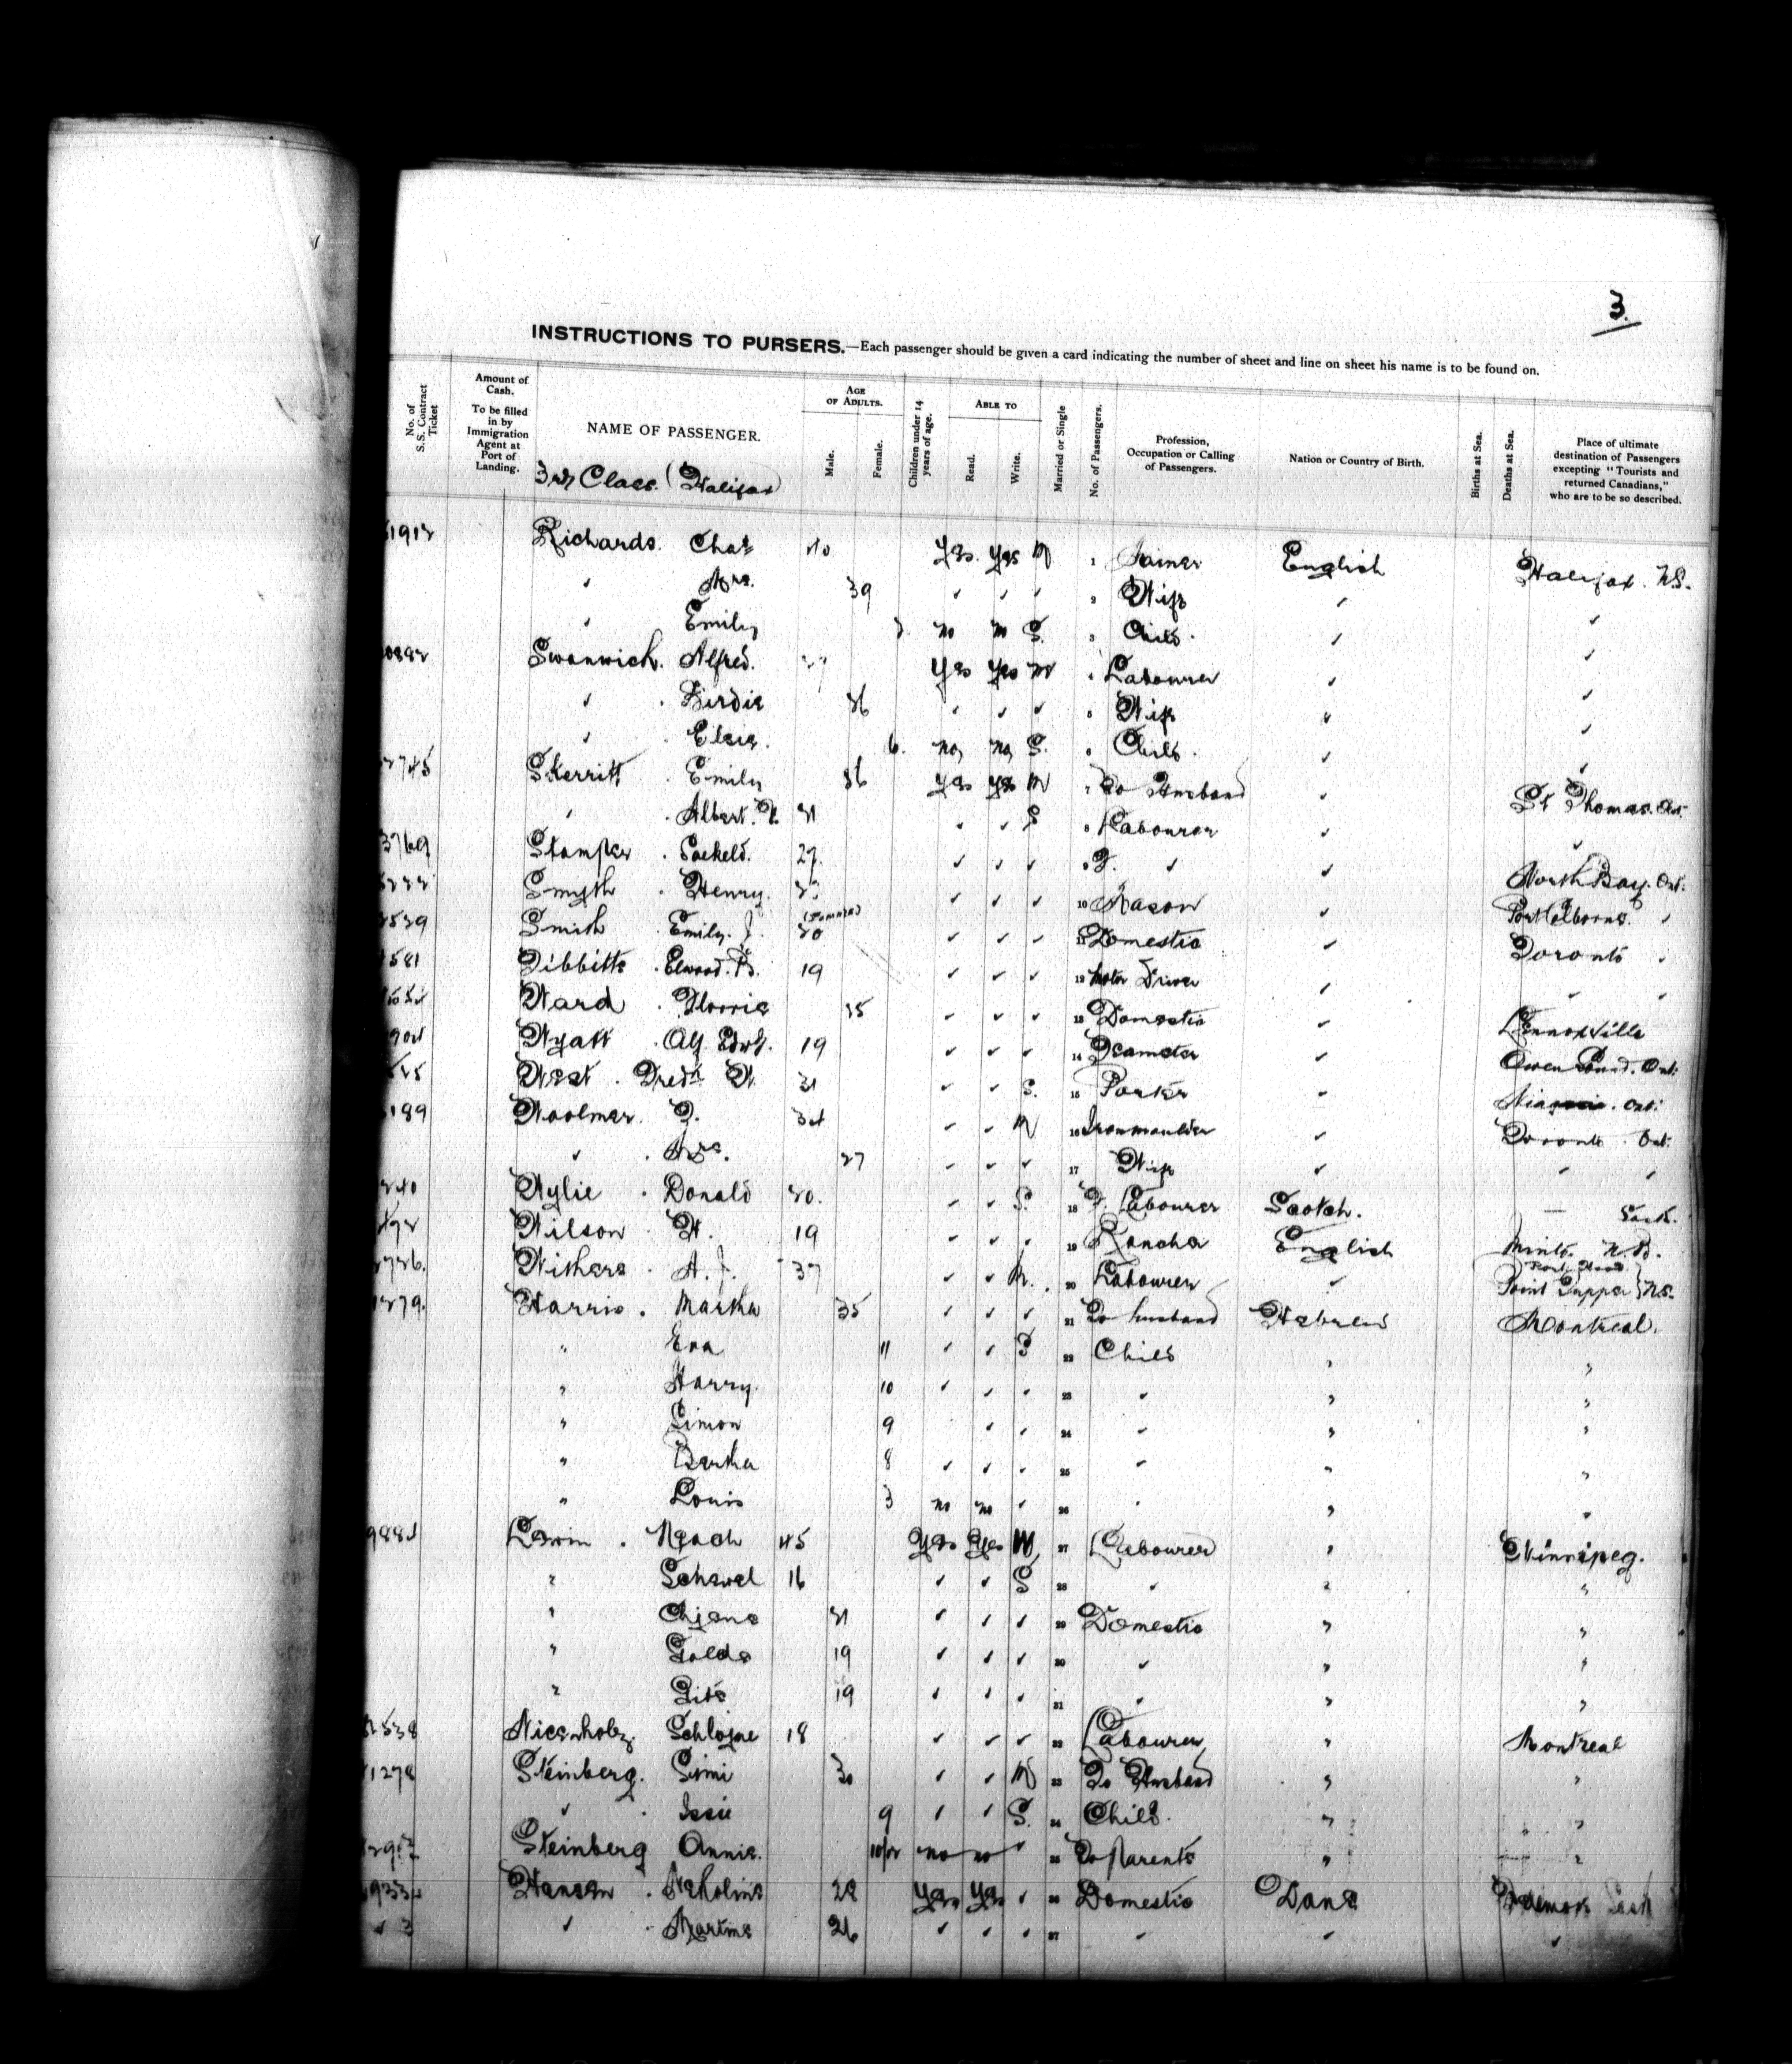 3.
INSTRUCTIONS TO PURSERS.—Each passenger should be given a card indicating the number of sheet and line on sheet his name is to be found on.
No. of S.S. Contract Ticket
Amount of Cash. To be filled in by Immigration Agent at Port of Landing.
NAME OF PASSENGER.
AGE OF ADULTS. Male. Female.
Children under 14 years of age.
ABLE TO Read. Write.
Married or Single
No. of Passengers.
Profession, Occupation or Calling of Passengers.
Nation or Country of Birth.
Births at Sea.
Deaths at Sea.
Place of ultimate destination of Passengers excepting "Tourists and returned Canadians," who are to be so described.
3rd Class. (Halifax)
Richards. Chas 40 Yes. Yes M 1 English Halifax. N.S.
✓ Mrs. 39 ✓ ✓ ✓ 2 Wife ✓ ✓
✓ Emily no no S. 3 Child. ✓ ✓
Swanwich. Alfred. Yes Yes M 4 Labourer ✓ ✓
✓ Birdie 36 ✓ ✓ ✓ 5 Wife ✓ ✓
✓ Elsie. 6. no no S. 6 Child. ✓ ✓
Skerritt Emily 36 Yes Yes M 7 To Husband ✓ St Thomas. Ont.
✓ Albert. 21 ✓ ✓ S 8 Labourer ✓ ✓
Stamper 27. ✓ ✓ ✓ 9 F. ✓ ✓ North Bay. Ont.
Smyth Henry. 23 ✓ ✓ ✓ 10 Mason ✓ Port Colborne. ✓
Smith Emily. J. (Female) 20 ✓ ✓ ✓ 11 Domestic ✓ Toronto ✓
Tibbitts Elwood. B. 19 ✓ ✓ ✓ 12 Motor Driver ✓ ✓ ✓
Ward Florrie ✓ ✓ ✓ 13 Domestic ✓ Lennoxville
Wyatt Alf. Edwd. 19 ✓ ✓ ✓ 14 Teamster ✓ Owen Sound. Ont.
West. Fredk W. 21 ✓ ✓ S. 15 Porter ✓ Niagara. Ont.
Woolmer. 34 ✓ ✓ M 16 Ironmoulder ✓ Toronto. Ont.
✓ Mrs. 27 ✓ ✓ ✓ 17 Wife ✓ ✓ ✓
Wylie Donald 20. ✓ ✓ S. 18 F. Labourer Scotch. — Sask.
Wilson W. 19 ✓ ✓ ✓ 19 Rancher English Minto. N.B.
Withers A. J. 37 ✓ ✓ M. 20 Labourer ✓ Port Hood Point Tupper } N.S.
Harris. Martha 35 ✓ ✓ ✓ 21 To husband Hebrews Montreal.
" Eva 11 ✓ ✓ S 22 Child " "
" Harry. 10 ✓ ✓ ✓ 23 ✓ " "
" Simon 9 ✓ ✓ 24 ✓ " "
" Bertha 8 ✓ ✓ ✓ 25 ✓ " "
" Louis 3 no no ✓ 26 ✓ " "
Lewin. 45 Yes Yes 27 Labourer " Winnipeg.
" 16 ✓ ✓ S 28 ✓ " "
" 21 ✓ ✓ ✓ 29 Domestic " "
" Golde 19 ✓ ✓ ✓ 30 ✓ " "
" 19 ✓ ✓ ✓ 31 ✓ " "
Schlojme 18 ✓ ✓ ✓ 32 Labourer " Montreal
Steinberg. Simi 30 ✓ ✓ M 33 To Husband " "
✓ Issie 9 ✓ ✓ S. 34 Child. " "
Steinberg Annie. 10/12 no no ✓ 35 To Parents " "
Hansen 28 Yes Yes ✓ 36 Domestic Dane
✓ Martine 26 ✓ ✓ ✓ 37 ✓ ✓ ✓